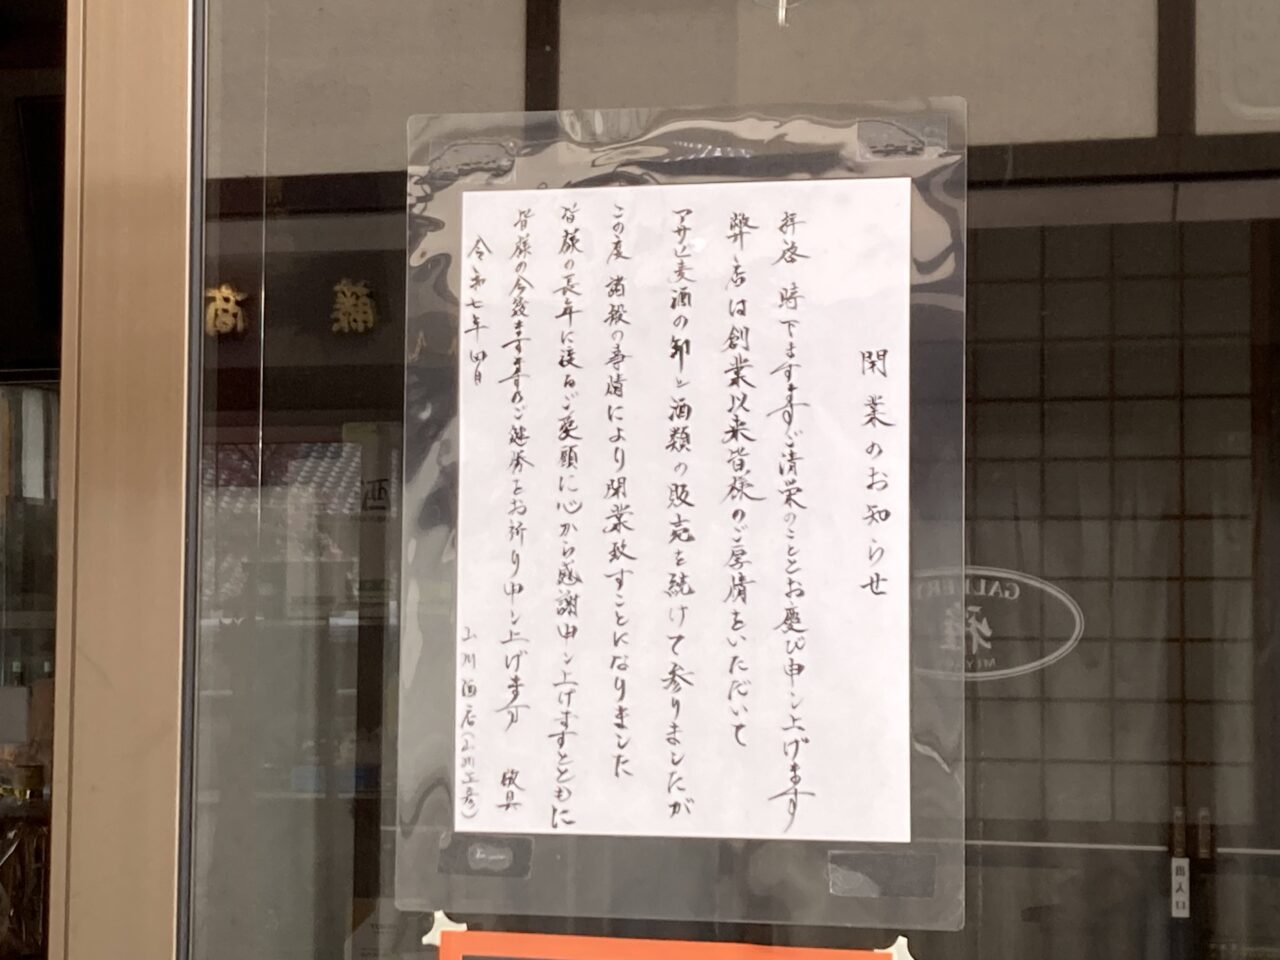 閉業のお知らせ
拝啓 時下ますますご清栄のこととお慶び申し上げます
弊店は創業以来皆様のご厚情をいただいて
アサヒ麦酒の卸と酒類の販売を続けて参りましたが
この度 諸般の事情により閉業致すことになりました
皆様の長年に渡るご愛顧に心から感謝申し上げますとともに
皆様の今後ますますのご健勝をお祈り申し上げます 敬具
令和七年 四月
山川酒店(山川工彦)
GALLERY
雅
MIYABI
出入口